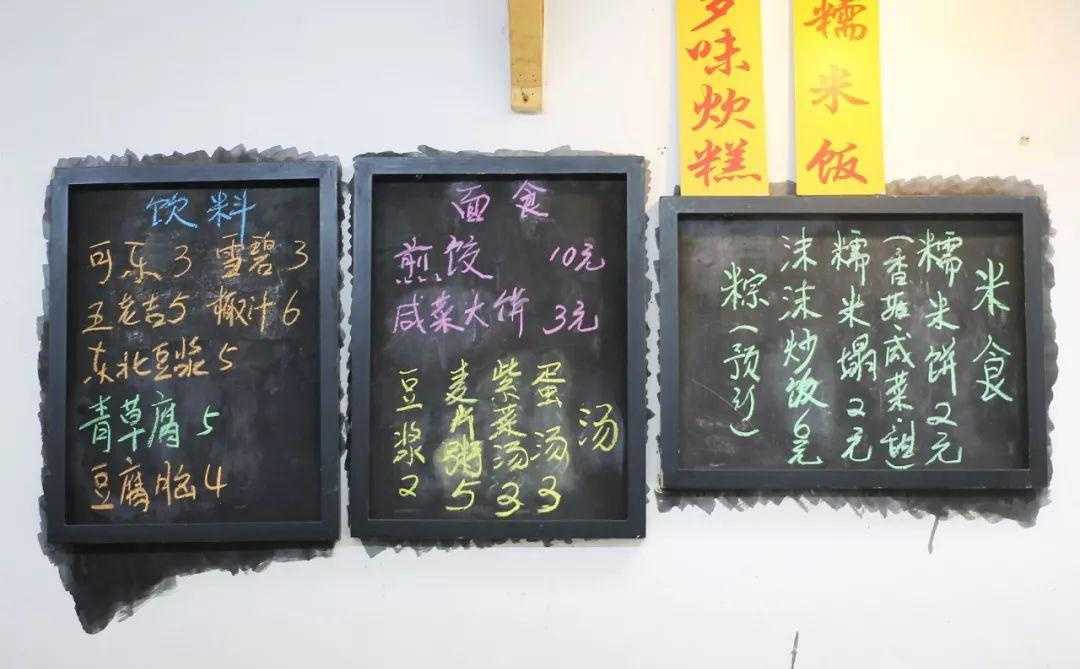 多味炊糕
糯米饭
饮料
可乐3 雪碧3
王老吉5 椰汁6
东北豆浆5
青草腐 5
豆腐脑4
面食
煎饺 10元
咸菜大饼 3元
汤
蛋汤3
紫菜汤3
麦片粥5
豆浆2
米食
糯米饼2元
(香菇咸菜)
糯米塌2元
沫沫炒饭
粽(预订)